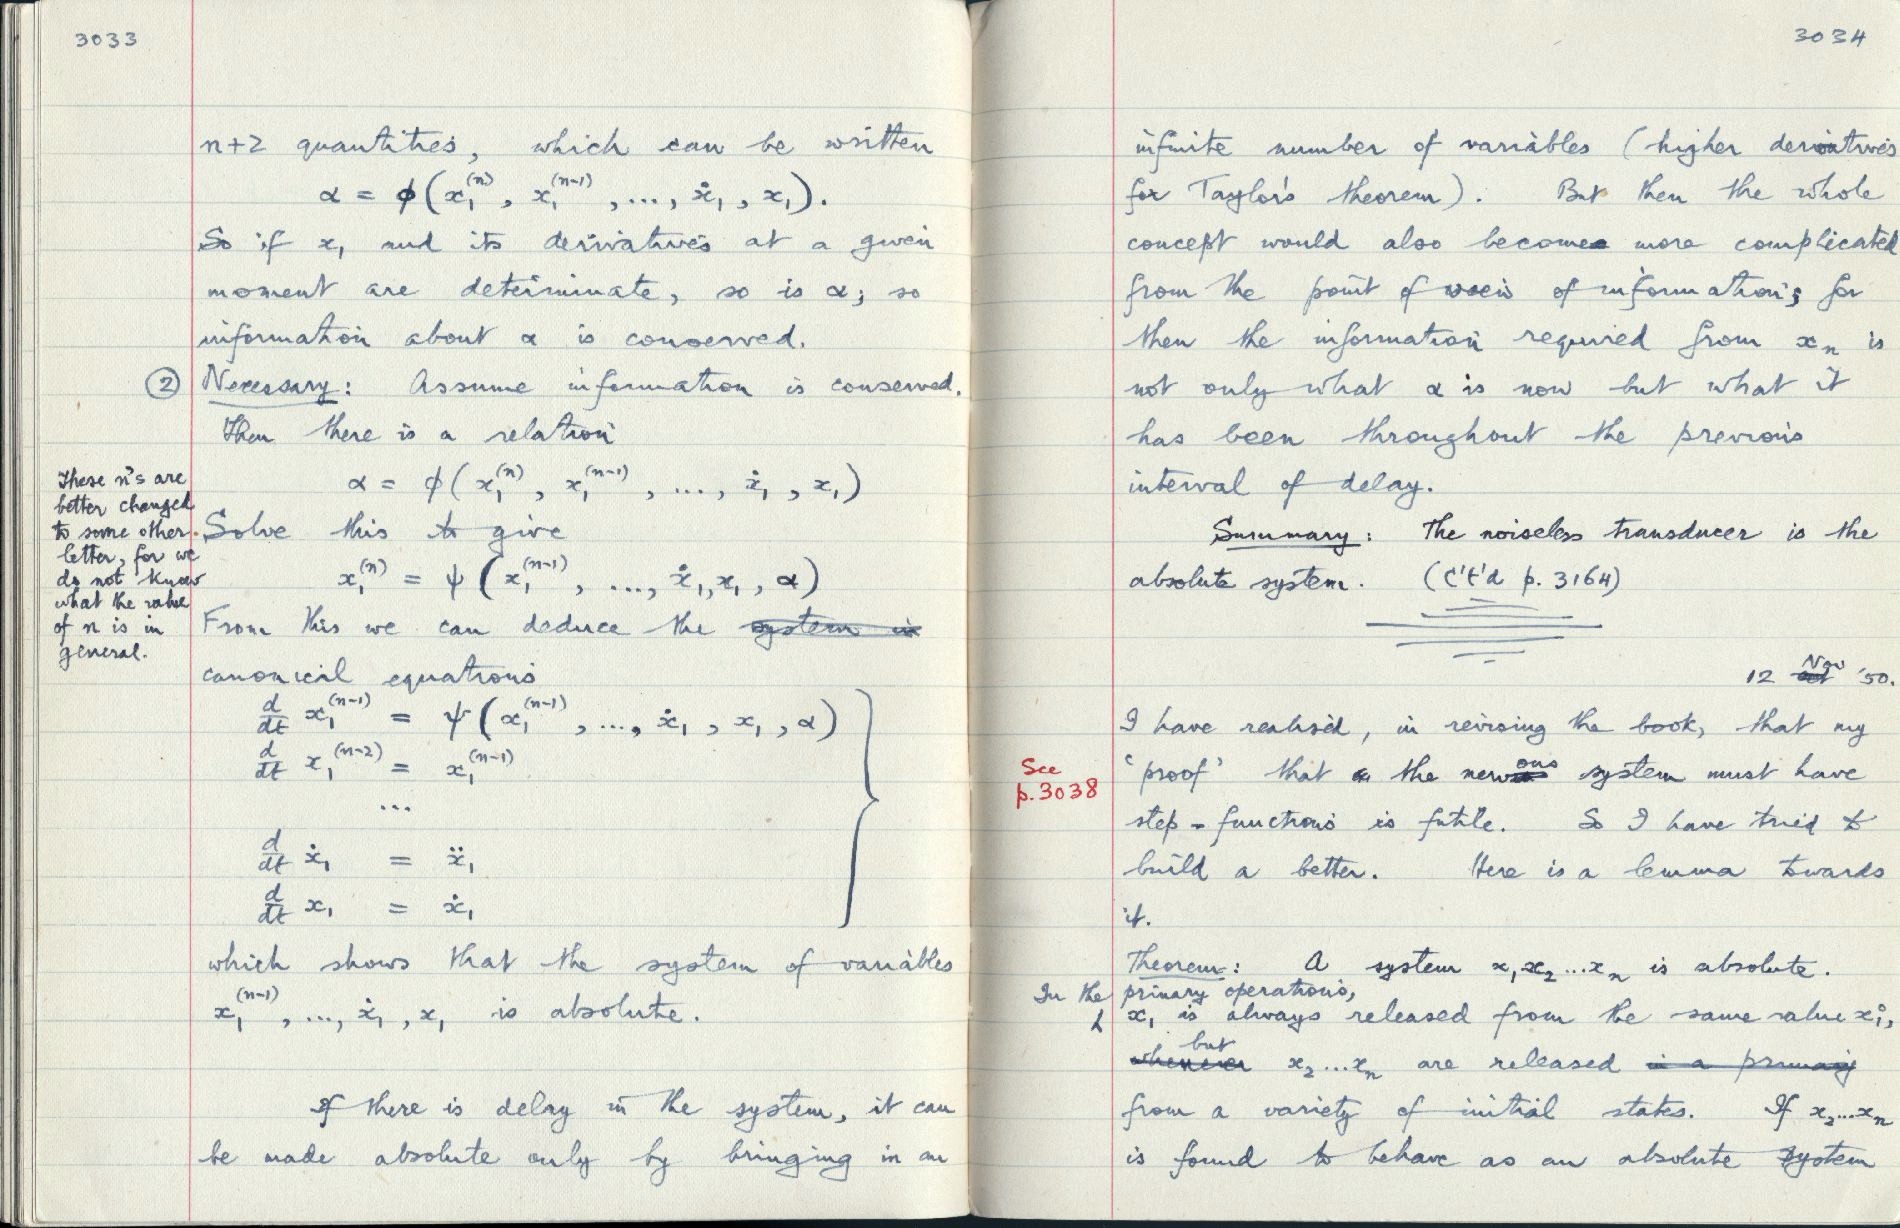 3033
n+2 quantities, which can be written
α = ϕ(x₁⁽ⁿ⁾, x₁⁽ⁿ⁻¹⁾, ..., ẋ₁, x₁).
So if x₁ and its derivatives at a given
moment are determinate, so is α; so
information about α is conserved.
② Necessary: Assume information is conserved.
Then there is a relation
α = ϕ(x₁⁽ⁿ⁾, x₁⁽ⁿ⁻¹⁾, ..., ẋ₁, x₁)
These n's are
better changed
to some other
letter, for we
do not know
what the value
of n is in
general.
Solve this to give
x₁⁽ⁿ⁾ = ψ(x₁⁽ⁿ⁻¹⁾, ..., ẋ₁, x₁, α)
From this we can deduce the system in
canonical equations
d/dt x₁⁽ⁿ⁻¹⁾ = ψ(x₁⁽ⁿ⁻¹⁾, ..., ẋ₁, x₁, α)
d/dt x₁⁽ⁿ⁻²⁾ = x₁⁽ⁿ⁻¹⁾
...
d/dt ẋ₁ = ẍ₁
d/dt x₁ = ẋ₁
which shows that the system of variables
x₁⁽ⁿ⁻¹⁾, ..., ẋ₁, x₁ is absolute.
If there is delay in the system, it can
be made absolute only by bringing in an
3034
infinite number of variables (higher derivatives
for Taylor's theorem). But then the whole
concept would also become more complicated
from the point of view of information; for
then the information required from xₙ is
not only what α is now but what it
has been throughout the previous
interval of delay.
Summary: The noiseless transducer is the
absolute system. (C't'd p. 3164)
12 Nov '50.
I have realised, in revising the book, that my
See
p.3038
'proof' that the nervous system must have
step-functions is futile. So I have tried to
build a better. Here is a lemma towards
it.
Theorem: A system x₁x₂...xₙ is absolute.
In the primary operations,
x₁ is always released from the same value x₁⁰,
whenever but x₂...xₙ are released in a primary
from a variety of initial states. If x₂...xₙ
is found to behave as an absolute system